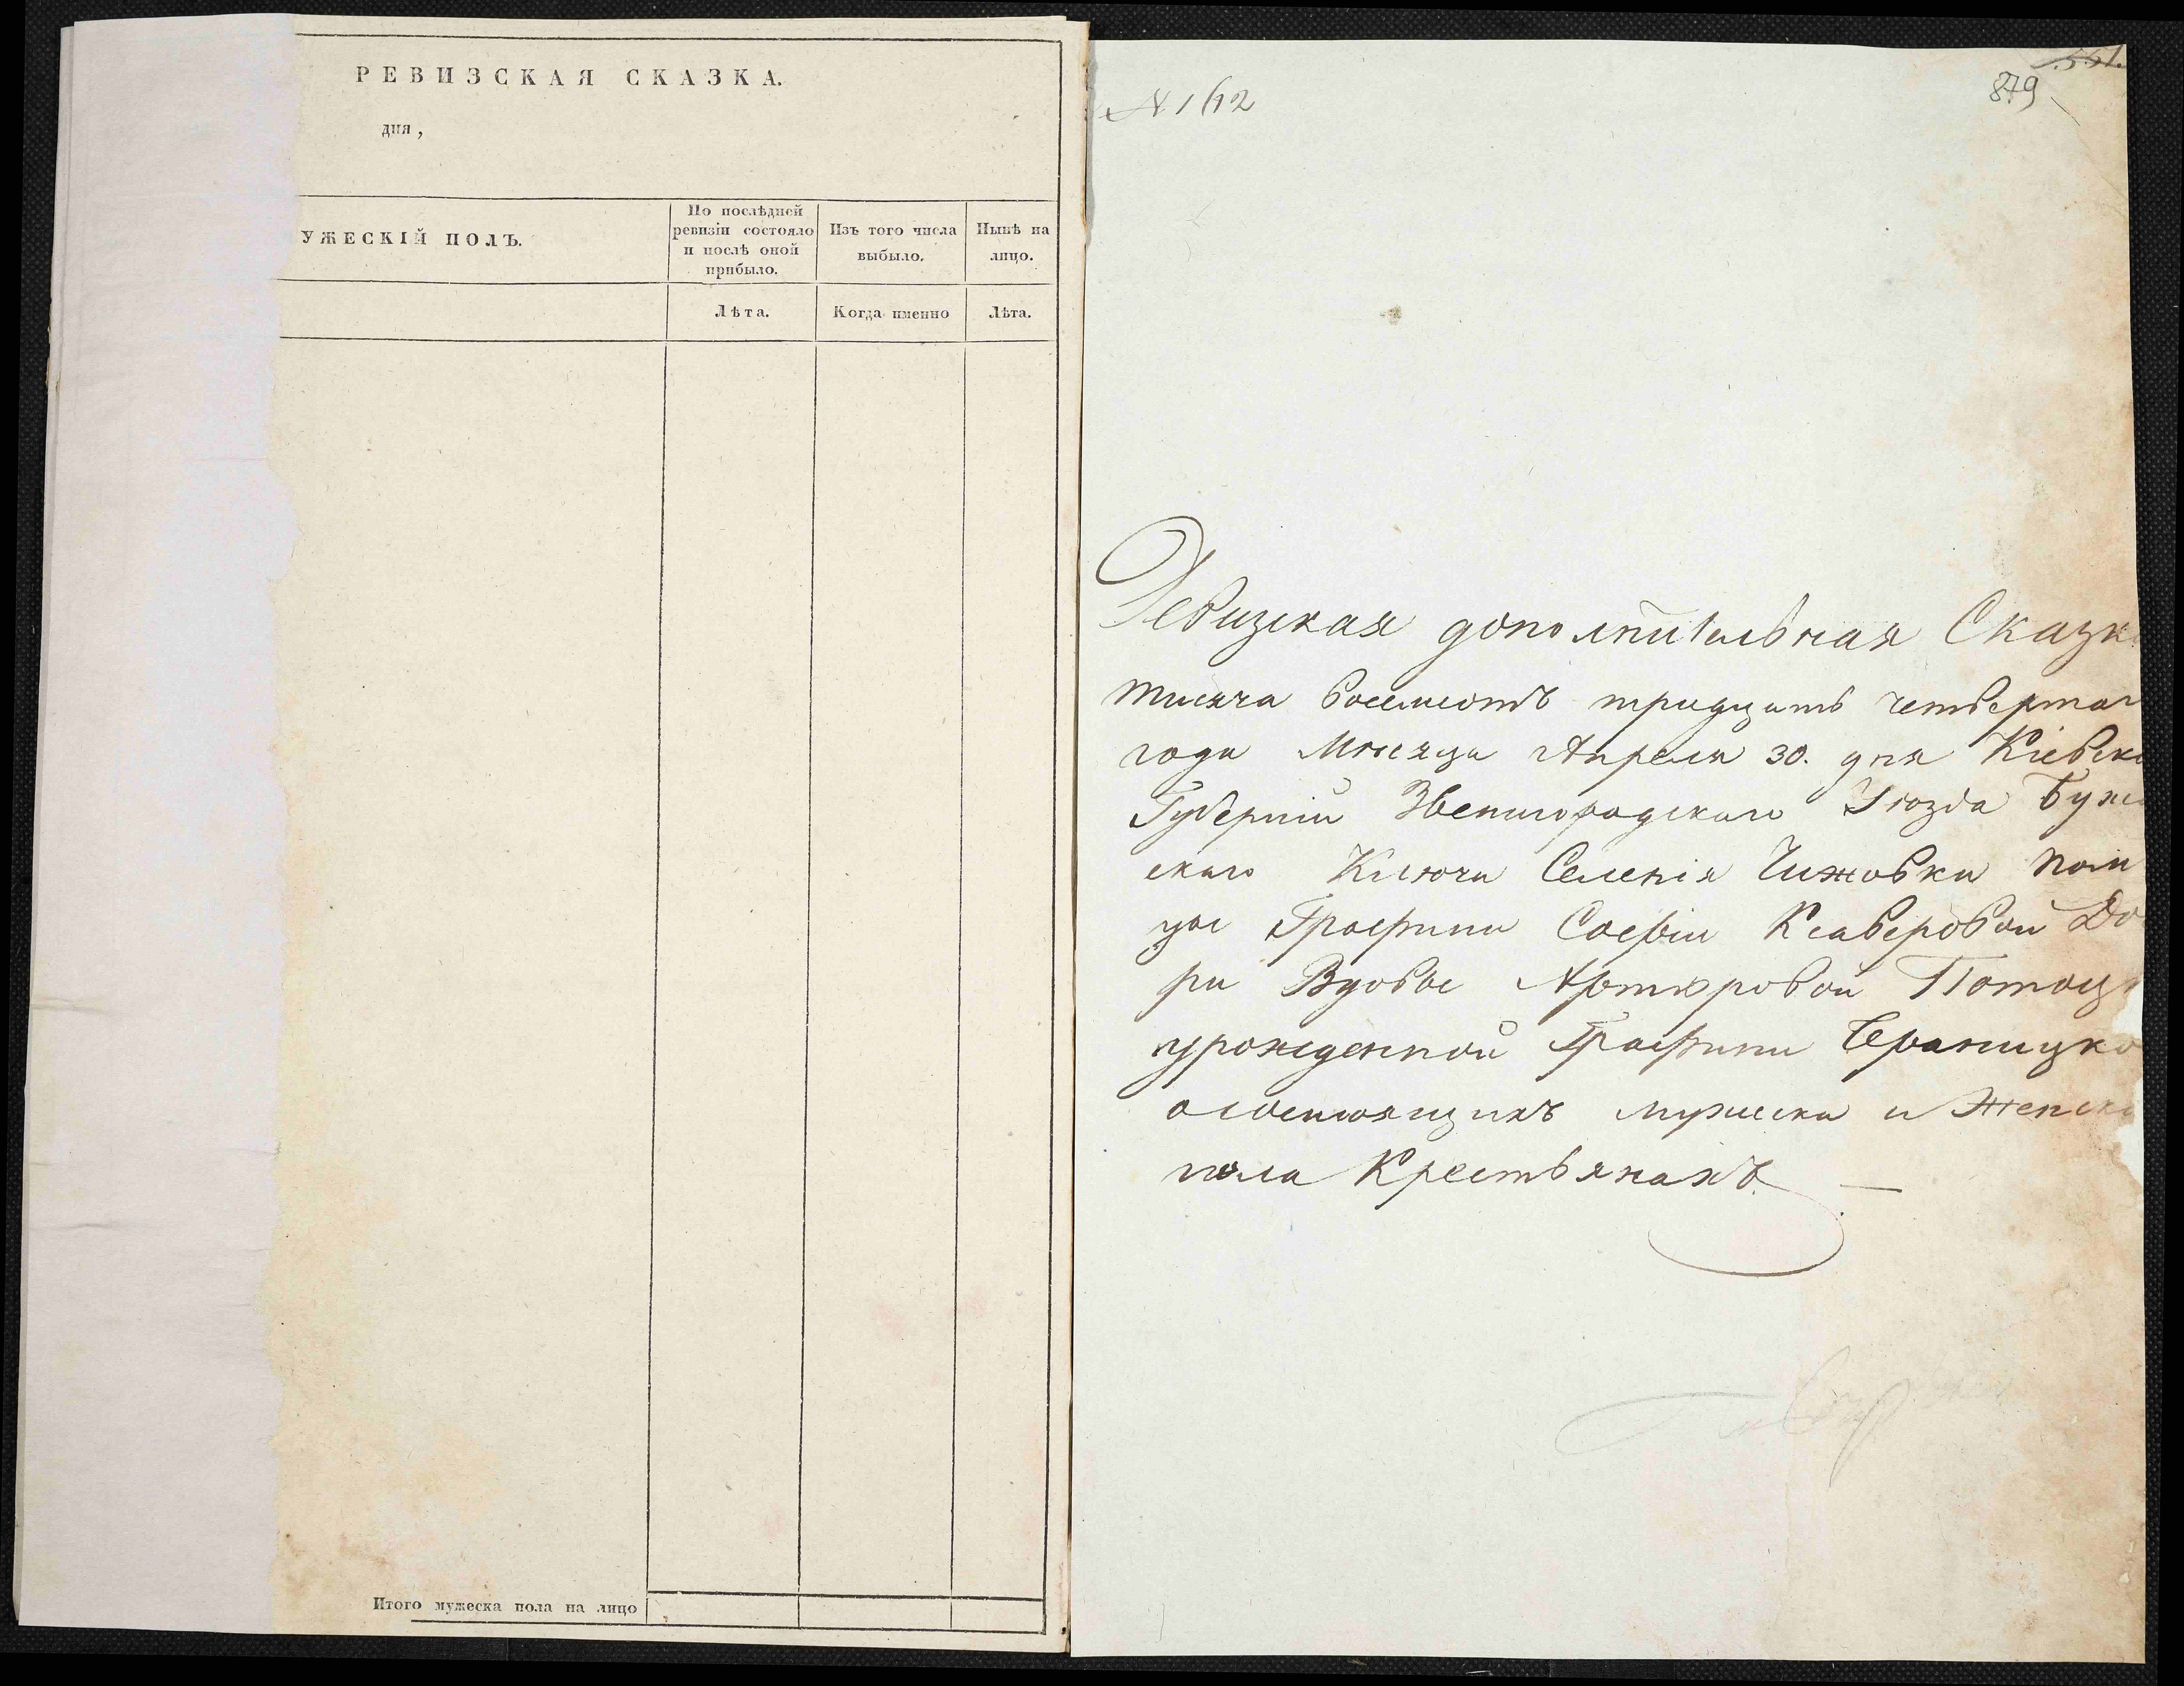 РЕВИЗСКАЯ СКАЗКА.
дня ,
УЖЕСКІЙ ПОЛЪ.
По послѣдней
ревизіи состояло
и послѣ оной
прибыло.
Изъ того числа
выбыло.
Нынѣ на
лицо.
Лѣта.
Когда именно
Лѣта.
Итого мужеска пола на лицо
551.
879
N 162
Ревизская дополнительная Сказк
тисяча восемсотъ тридцать четвертаг
года Мѣсяца Апреля 30. дня Кіевско
Губерніи Звенигородскаго Уѣзда Буж
скаго Ключа Селенія Чижовки пом
цы Графини Софіи Ксаверовой До
ри Вдовы Артуровой Потоцк
урожденной Графини Браницко
о состоящихъ мужеска и Женска
пола Крестьянахъ. —